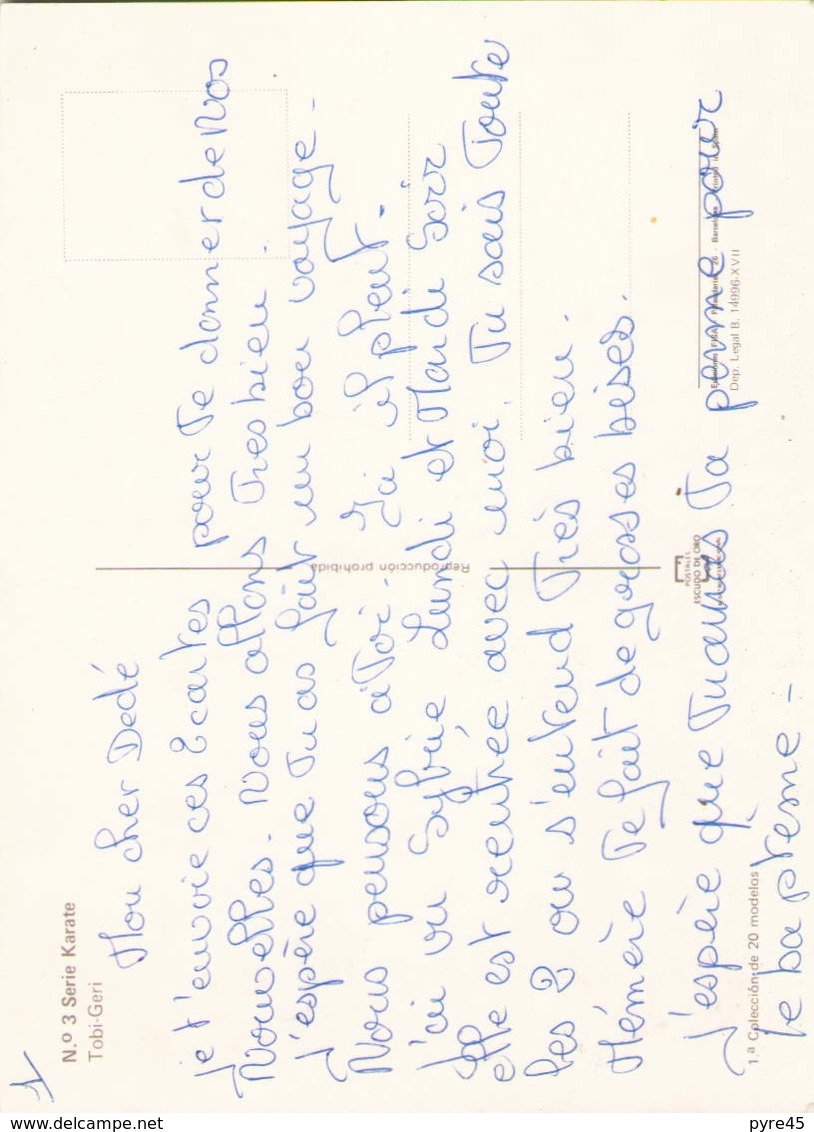 1/
N.º 3 Serie Karate
Tobi-Geri
Mon cher Dedé
je t'envoie ces 2 cartes pour Te donner de Nos
Nouvelles. Nous allons Tres bien.
J'espère que Tu as fait un bon voyage -
Nous pensons à Toi. Ici il pleut.
J'ai vu Sylvie Lundi et Mardi Soir
Elle est rentrée avec moi. Tu sais Toute
Les 2 on s'entend Très bien.
Mémère Te fait de grosses bises.
J'espère que Tu auras Ta perme pour
le bapteme -
Reproducción prohibida
POSTALES
ESCUDO DE ORO
Dep. Legal B. 14996-XVII
1.ª Colección de 20 modelos
www.delcampe.net
pyre45